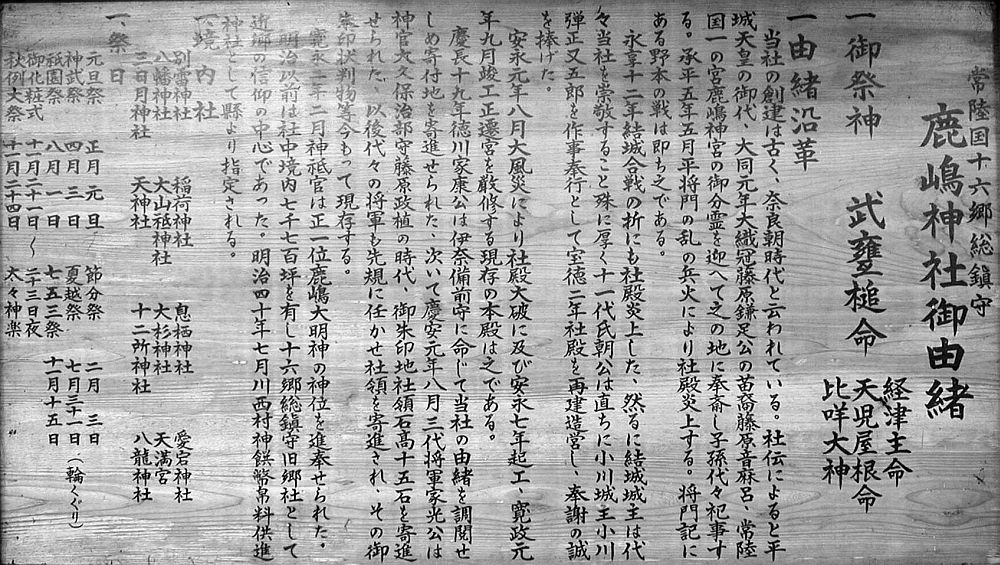 常陸国十六郷総鎮守
鹿嶋神社御由緒
一御祭神　武甕槌命
経津主命
天児屋根命
比咩大神
一由緒沿革
当社の創建は古く、奈良朝時代と云われている。社伝によると平
城天皇の御代、大同元年大織冠藤原鎌足公の苗裔藤原音麻呂、常陸
国一の宮鹿嶋神宮の御分霊を迎へて之の地に奉斎し子孫代々祀事す
る。承平五年五月平将門の乱の兵火により社殿炎上する。将門記に
ある野本の戦は即ち之である。
永享十二年結城合戦の折にも社殿炎上した、然るに結城城主は代
々当社を崇敬すること殊に厚く十一代氏朝公は直ちに小川城主小川
弾正又五郎を作事奉行として宝徳二年社殿を再建造営し、奉謝の誠
を捧げた。
安永元年八月大風災により社殿大破に及び安永七年起工、寛政元
年九月竣工正遷宮を厳修する現存の本殿は之である。
慶長十九年徳川家康公は伊奈備前守に命じて当社の由緒を調閲せ
しめ寄付地を寄進せられた、次いで慶安元年八月三代将軍家光公は
神官大久保治部守藤原政植の時代、御朱印地社領石高十五石を寄進
せられた、以後代々の将軍も先規に任かせ社領を寄進され、その御
朱印状判物等今もって現存する。
寛永二年二月神祇官は正一位鹿嶋大明神の神位を進奉せられた。
明治以前は社中境内七千七百坪を有し十六郷総鎮守旧郷社として
近郷の信仰の中心であった。明治四十年七月川西村神饌幣帛料供進
神社として縣より指定される。
一境内社
別雷神社　稲荷神社　息栖神社　愛宕神社
八幡神社　大山祗神社　大杉神社　天満宮
三日月神社　天神社　十二所神社　八龍神社
一、祭日
元旦祭　正月元旦　節分祭　二月三日
神武祭　四月三日　夏越祭　七月三十一日（輪くぐり）
祇園祭　八月一日　七五三祭　十一月十五日
御化粧式　十月二十一日～二十三日夜
秋例大祭　十一月二十四日　太々神楽　〃